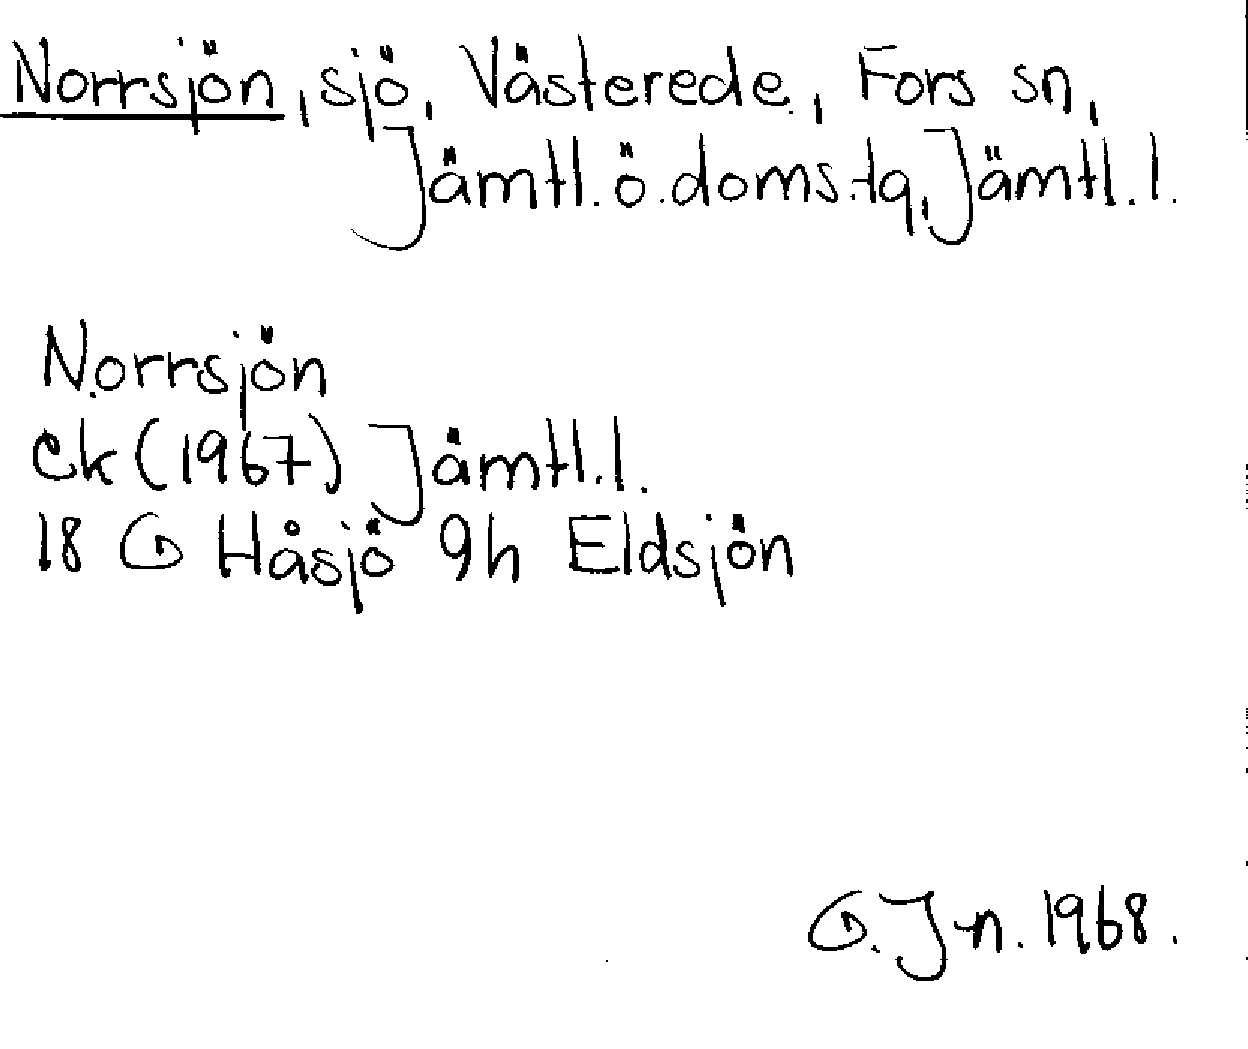 Norrsjön, sjö, Västerede, Fors sn,
Jämtl. ö. doms.tg, Jämtl. l.
Norrsjön
ek (1967) Jämtl. l.
18 G Håsjö 9h Eldsjön
G. J-n. 1968.